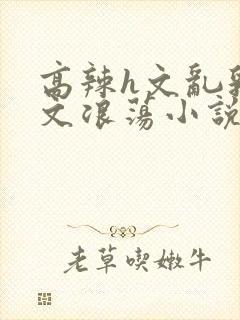 高辣h文亂
文浪蕩小說
老草喫嫩牛